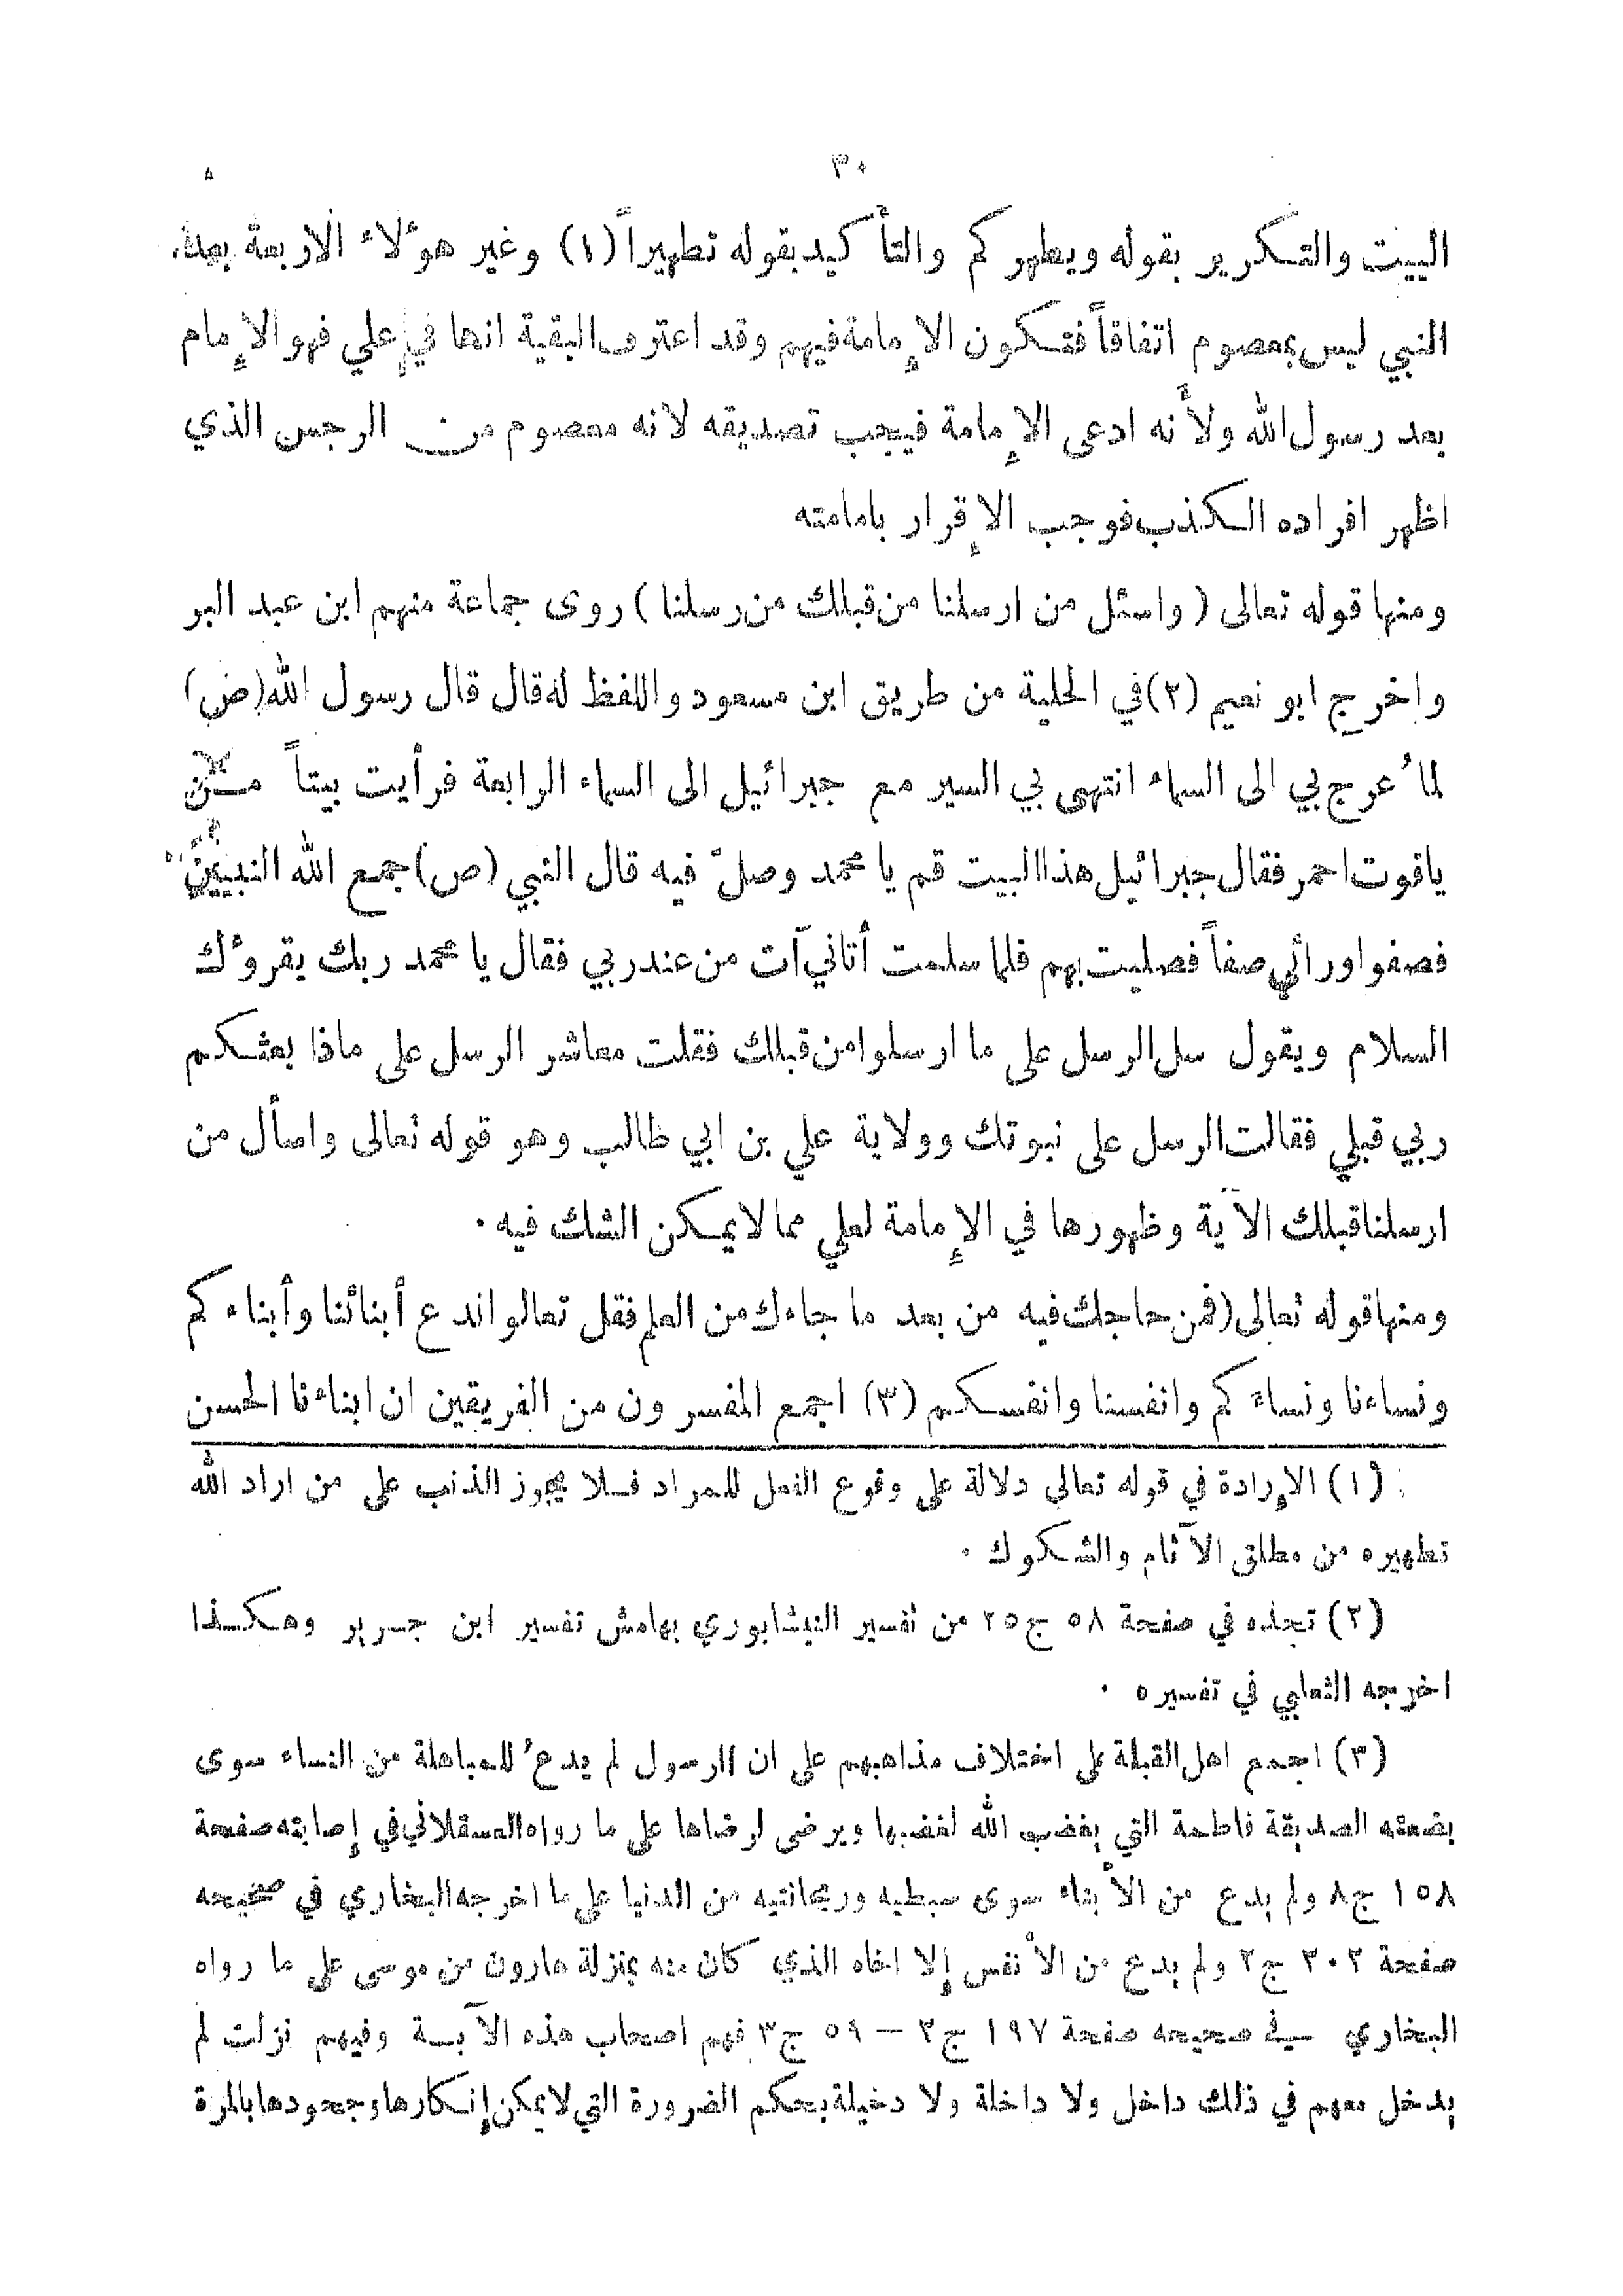 ٣٠
البيت والتكرير بقوله ويطهركم والتأكيد بقوله تطهيراً (١) وغير هؤلاء الاربعة بعد
النبي ليس بمعصوم اتفاقاً فتكون الإمامة فيهم وقد اعترف البقية انها في علي فهو الإمام
بعد رسول الله ولأنه ادعى الإمامة فيجب تصديقه لانه معصوم من الرجس الذي
اظهر افراده الكذب فوجب الإقرار بامامته
ومنها قوله تعالى ( واسئل من ارسلنا من قبلك من رسلنا ) روى جماعة منهم ابن عبد البر
واخرج ابو نعيم (٢) في الحلية من طريق ابن مسعود واللفظ له قال قال رسول الله (ص)
لما عرج بي الى السماء انتهى بي السير مع جبرائيل الى السماء الرابعة فرأيت بيتاً من
ياقوت احمر فقال جبرائيل هذا البيت قم يا محمد وصلّ فيه قال النبي (ص) جمع الله النبيين
فصفوا ورائي صفاً فصليت بهم فلما سلمت أتاني آت من عند ربي فقال يا محمد ربك يقروئك
السلام ويقول سل الرسل على ما ارسلوا من قبلك فقلت معاشر الرسل على ماذا بعثكم
ربي قبلي فقالت الرسل على نبوتك وولاية علي بن ابي طالب وهو قوله تعالى واسأل من
ارسلنا قبلك الآية وظهورها في الإمامة لعلي مما لا يمكن الشك فيه ٠
ومنها قوله تعالى (فمن حاجك فيه من بعد ما جاءك من العلم فقل تعالوا ندع أبنائنا وأبناءكم
ونساءنا ونساءكم وانفسنا وانفسكم (٣) اجمع المفسرون من الفريقين ان ابناءنا الحسن
(١) الإرادة في قوله تعالى دلالة على وقوع الفعل للمراد فلا يجوز الذنب على من اراد الله
تطهيره من مطلق الآثام والشكوك ٠
(٢) تجده في صفحة ٥٨ ج ٢٥ من تفسير النيشابوري بهامش تفسير ابن جرير وهكذا
اخرجه الثعلبي في تفسيره ٠
(٣) اجمع اهل القبلة على اختلاف مذاهبهم على ان الرسول لم يدعُ للمباهلة من النساء سوى
بضعته الصديقة فاطمة التي يغضب الله لغضبها ويرضى لرضاها على ما رواه العسقلاني في إصابته صفحة
١٥٨ ج ٨ ولم يدع من الأبناء سوى سبطيه وريحانتيه من الدنيا على ما اخرجه البخاري في صحيحه
صفحة ٢٠٢ ج ٢ ولم يدع من الأنفس إلا اخاه الذي كان منه بمنزلة هارون من موسى على ما رواه
البخاري في صحيحه صفحة ١٩٧ ج ٢ – ٥٩ ج ٣ فهم اصحاب هذه الآية وفيهم نزلت لم
يدخل معهم في ذلك داخل ولا داخلة ولا دخيلة بحكم الضرورة التي لا يمكن إنكارها وجحودها بالمرة